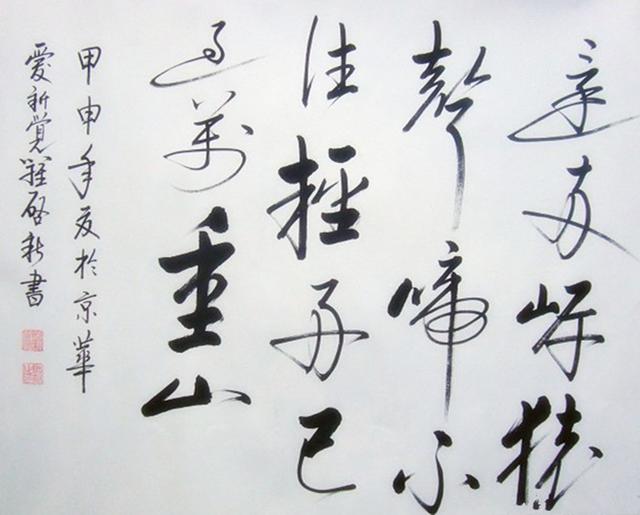 還兩岸猿
聲啼不
住輕舟已
過萬重山
甲申年夏於京華
愛新覺羅啟新書